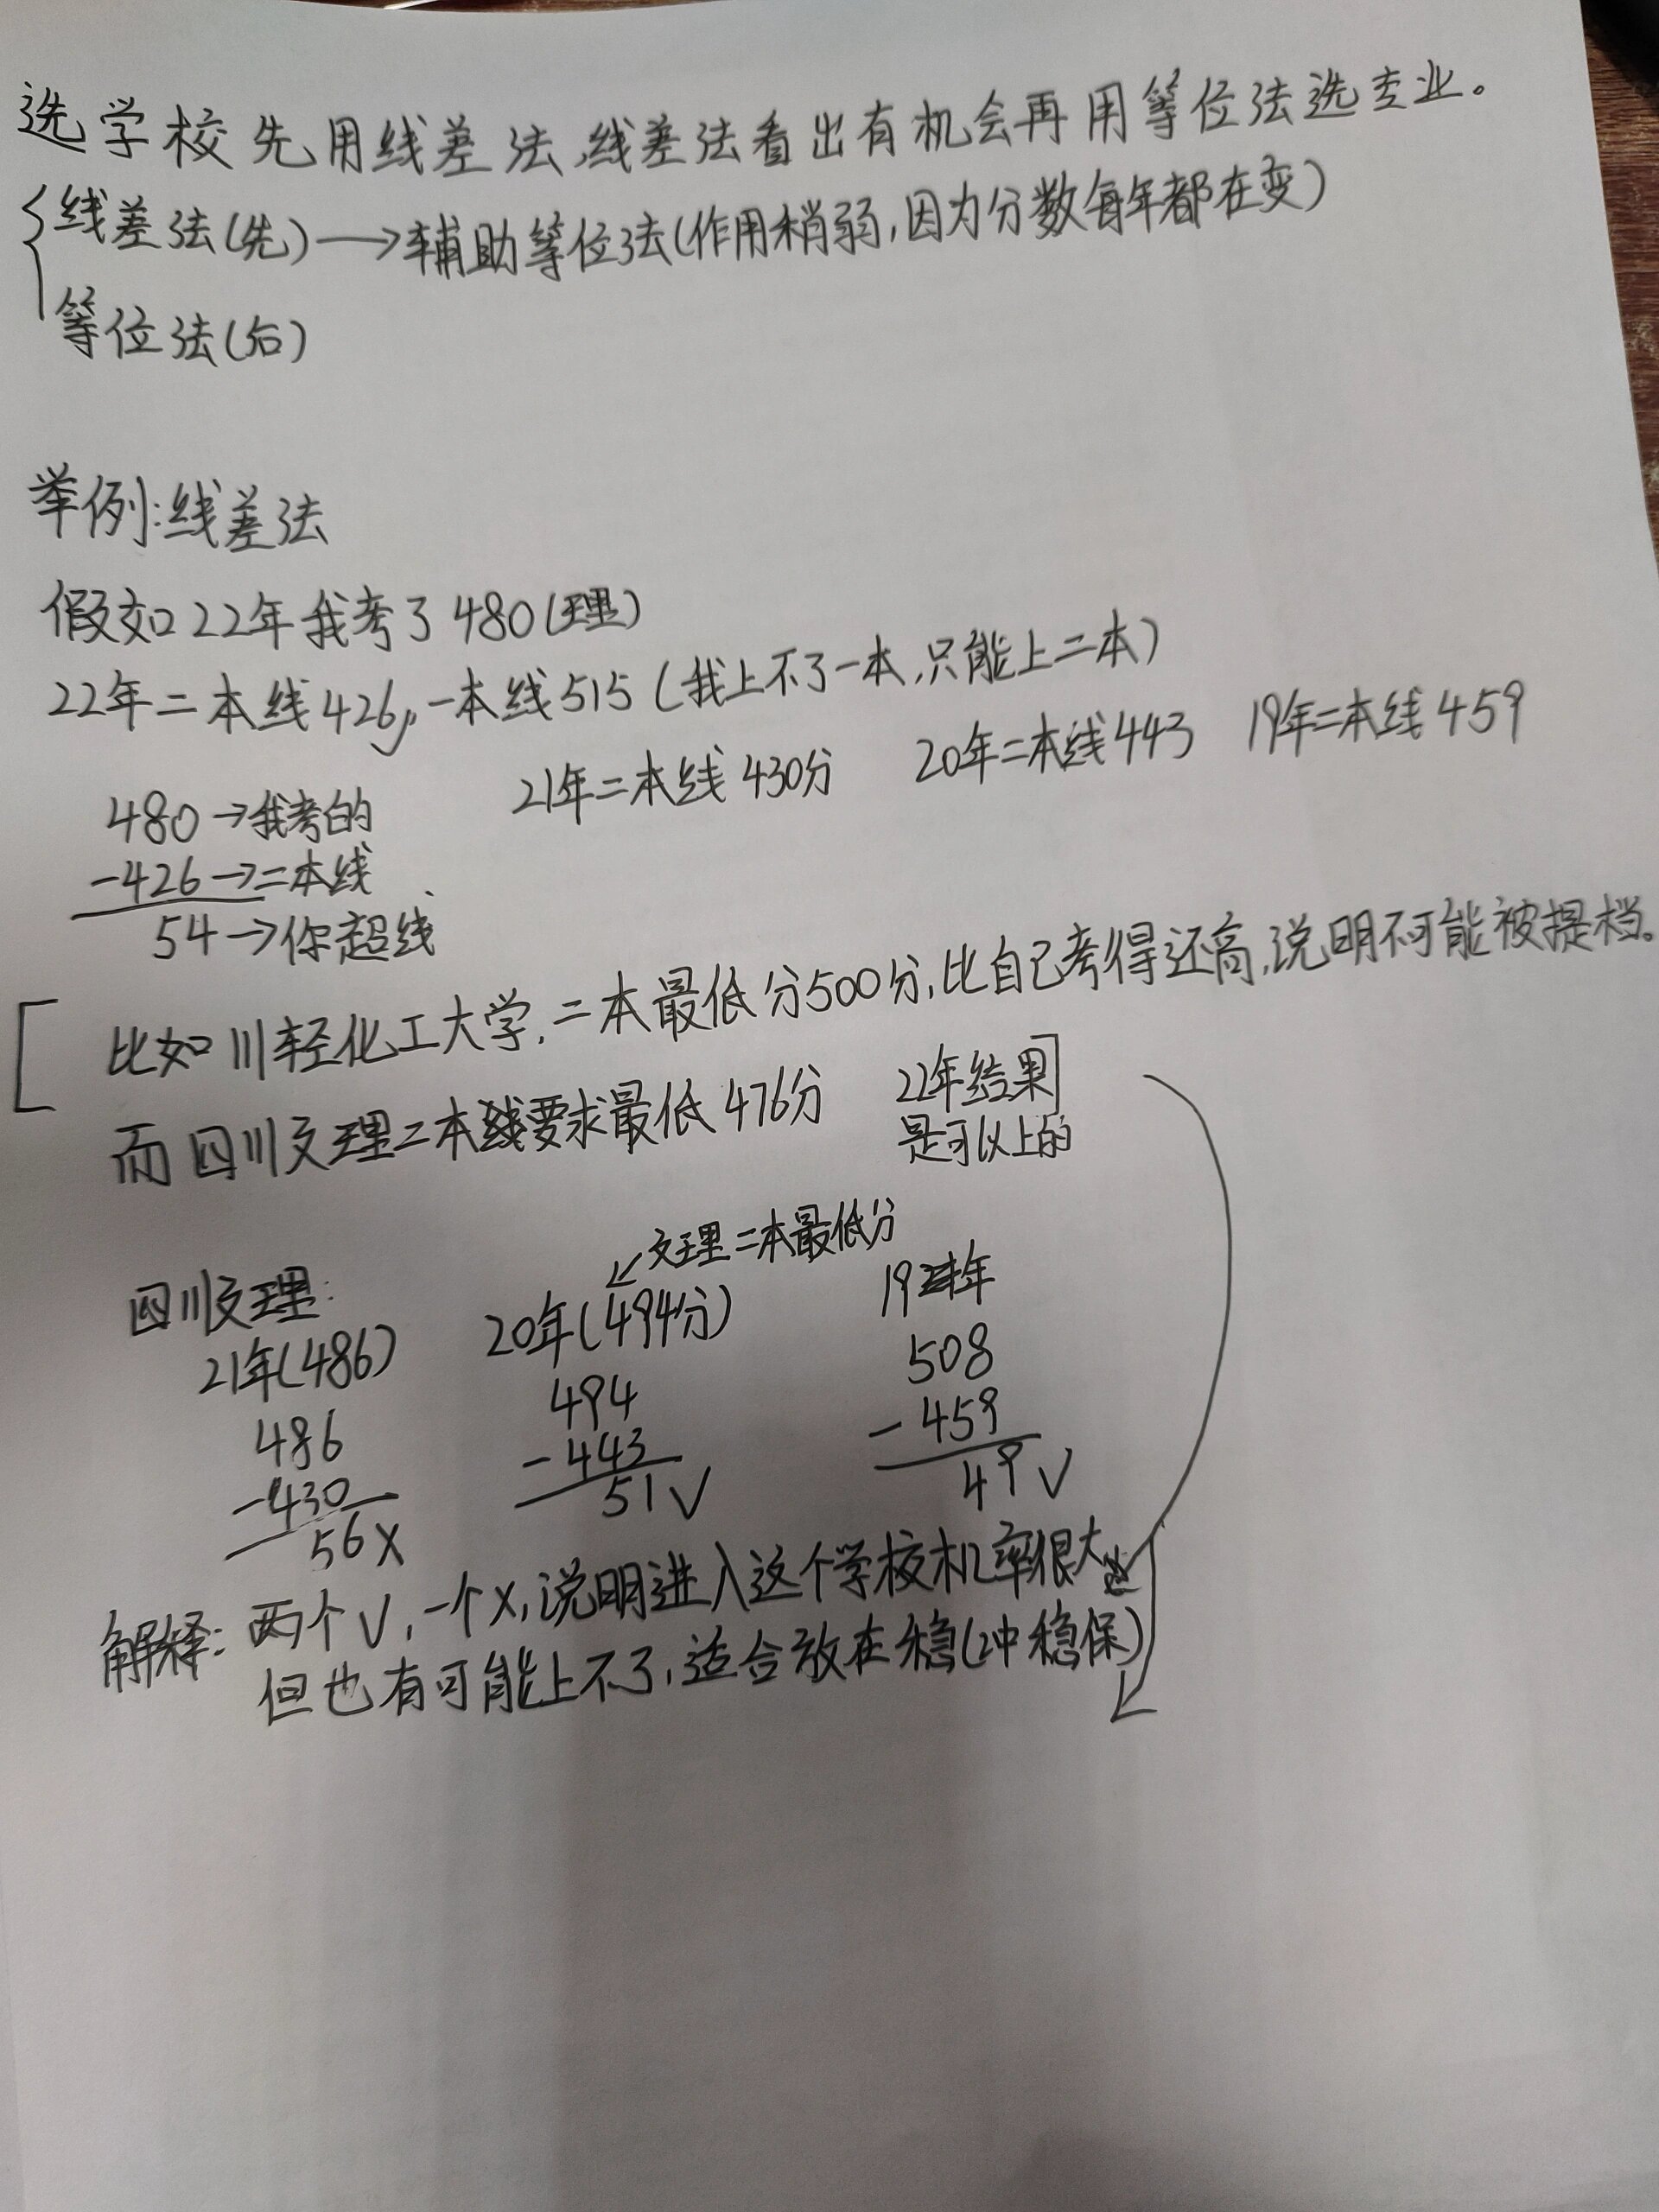 选学校先用线差法,线差法看出有机会再用等位法选专业。
线差法(先)→辅助等位法(作用稍弱,因为分数每年都在变)
等位法(后)
举例:线差法
假如22年我考了480(理)
22年二本线426,一本线515(我上不了一本,只能上二本)
21年二本线430分 20年二本线443 19年二本线459
480→我考的
-426→二本线
54→你超线
比如川轻化工大学,二本最低分500分,比自己考得还高,说明不可能被提档。
而四川文理二本线要求最低476分 22年结果
是可以上的
↙文理二本最低分
四川文理:
21年(486) 20年(494分) 19年
486 494 508
-430 -443 -459
56X 51√ 49√
解释:两个√,一个X,说明进入这个学校机率很大
但也有可能上不了,适合放在稳(冲稳保)